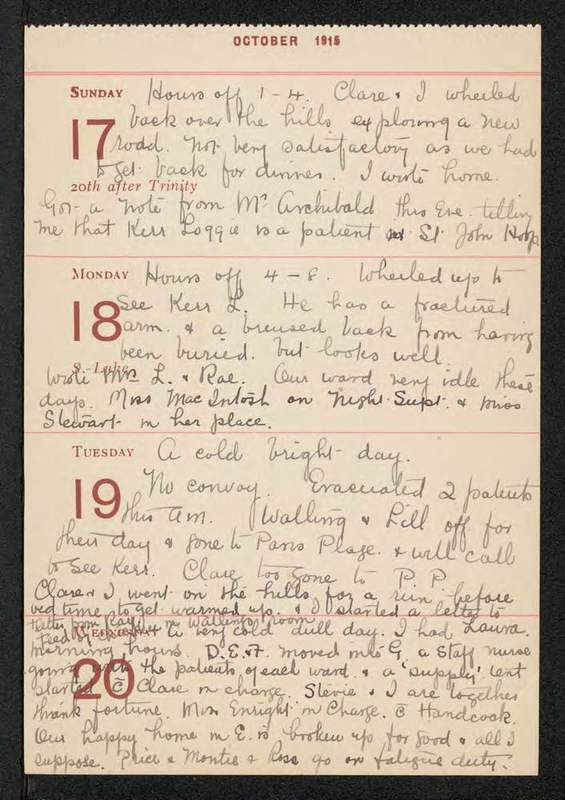 OCTOBER 1915
SUNDAY Hours off 1-4. Clare & I wheeled
17 back over the hills exploring a new
road. Not very satisfactory as we had
to get back for dinner. I wrote home.
20th after Trinity
Got a note from Mr Archibald this Eve. telling
me that Kerr Loggie is a patient at St John Hosp
MONDAY Hours off 4-8. Wheeled up to
18 see Kerr L. He has a fractured
arm. & a bruised back from having
been buried. but looks well.
S. Luke
Wrote Mrs L. & Rae. Our ward very idle these
days. Miss MacIntosh on Night Supt. & Miss
Stewart in her place.
TUESDAY A cold bright day.
19 No convoy. Evacuated 2 patients
this am. Walling & Lill off for
their day & gone to Paris Plage. & will call
to see Kerr. Clare too gone to P. P.
Clare & I went on the hills for a run before
bed time to get warmed up. & I started a letter to
Laura.
WEDNESDAY very cold dull day. I had
morning hours. D.E.&F. moved into G, a staff nurse
going with the patients of each ward. & a 'supply' tent
20 started c̄ Clare in charge. Stevie & I are together
thank fortune. Miss Enright in Charge. c̄ Handcock.
Our happy home in E. is broken up for good & all I
suppose. Price & Montie & Ross go on fatigue duty.